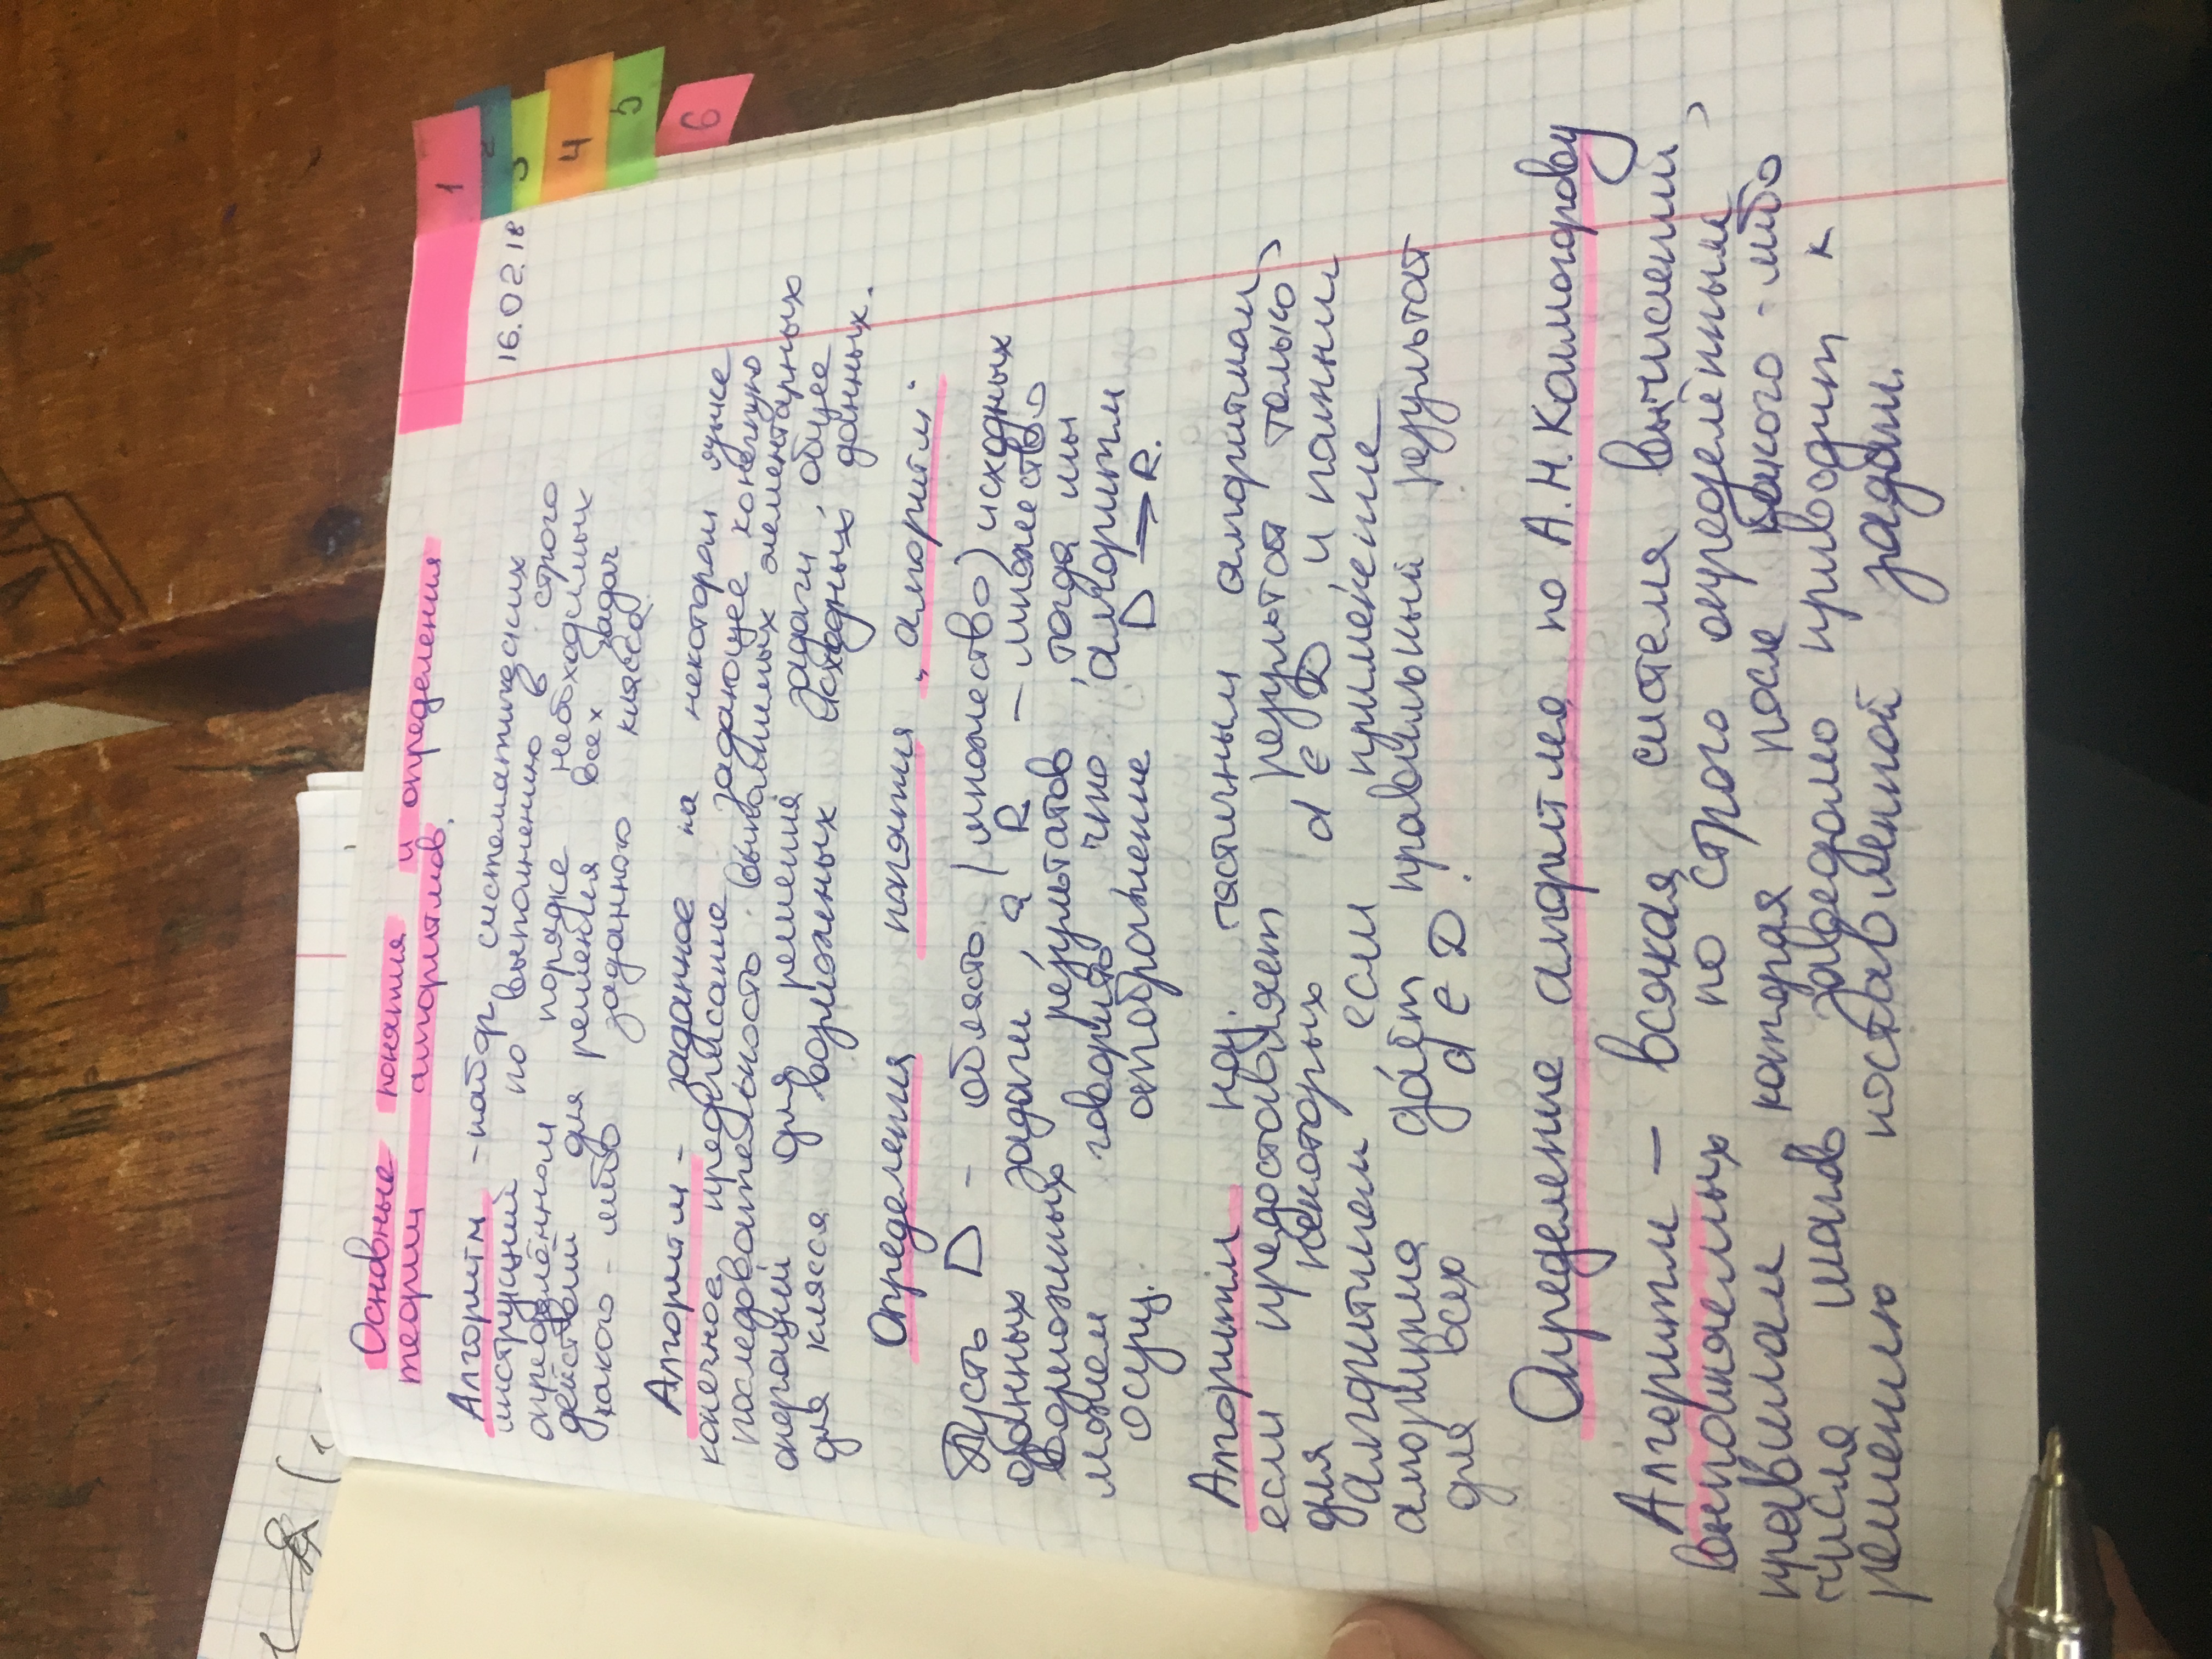 Основные понятия и определения
теории алгоритмов.
1
Алгоритм - набор систематических
16.02.18
2
инструкций по выполнению в строго
3
определённом порядке необходимых
4
действий для решения всех задач
какого-либо заданного класса.
5
Алгоритм - заданное на некотором языке
6
конечное предписание, задающее конечную
последовательность выполнимых элементарных
операций для решения задачи, общее
для класса возможных исходных данных.
Определения понятия „алгоритм"
Пусть D - область (множество) исходных
данных задачи, а R - множество
возможных результатов, тогда мы
можем говорить, что алгоритм
осущ. отображение D → R.
Алгоритм наз. частичным алгоритмом,
если предоставляет результат только
для некоторых d ∈ D, и полным
алгоритмом, если применение
алгоритма даёт правильный результат
для всех d ∈ D.
Определение алгоритма по А.Н.Колмогорову
Алгоритм - всякая система вычислений,
выполняемых по строго определённым
правилам, которая после какого-либо
числа шагов заведомо приводит к
решению поставленной задачи.